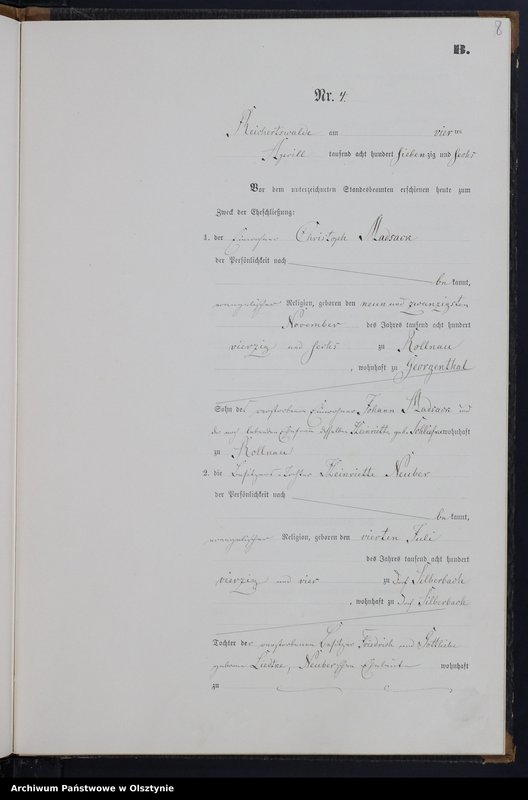 8
B.
Nr. 4.
Reichertswalde am vier ten
April tausend acht hundert sieben zig und sechs
Vor dem unterzeichneten Standesbeamten erschienen heute zum
Zweck der Eheschließung:
1. der Einwohner Christoph Madsack
der Persönlichkeit nach
be kannt,
evangelischer Religion, geboren den neun und zwanzigsten
November des Jahres tausend acht hundert
vierzig und sechs zu Kollnau
, wohnhaft zu Georgenthal
Sohn des verstorbenen Einwohner Johann Madsack und
der noch lebenden Ehefrau desselben Heinriette geb. wohnhaft
zu Kollnau
2. die Besitzers-Tochter Heinriette Neuber
der Persönlichkeit nach
be kannt,
evangelischer Religion, geboren den vierten Juli
des Jahres tausend acht hundert
vierzig und vier zu Dorf Silberbach
, wohnhaft zu Dorf Silberbach
Tochter der verstorbenen Besitzer Friedrich und Gottliebe
geborene Liedtke, Neuberschen Eheleute wohnhaft
zu
Archiwum Państwowe w Olsztynie